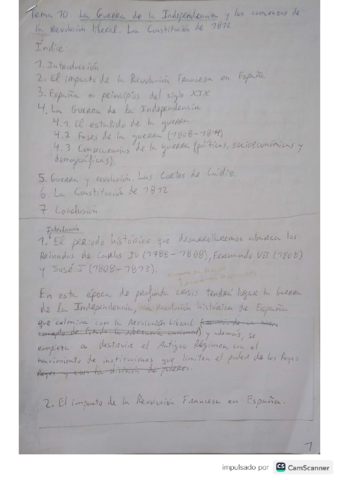 Tema 10. La Guerra de la Independencia y los comienzos de
la Revolución liberal. La Constitución de 1812
Índice
1. Introducción
2. El impacto de la Revolución Francesa en España
3. España a principios del siglo XIX
4. La Guerra de la Independencia
4.1 El estallido de la guerra
4.2 Fases de la guerra (1808-1814)
4.3 Consecuencias de la guerra (políticas, socioeconómicas y
demográficas).
5. Guerra y revolución. Las Cortes de Cádiz.
6. La Constitución de 1812
7 Conclusión
Introducción
1. El periodo histórico que desarrollaremos abarca los
Reinados de Carlos IV (1788-1808), Fernando VII (1808)
y José I (1808-1813).
En esta época de profunda crisis tendrá lugar la Guerra
de la Independencia, una evolución histórica de España
que culmina con la Revolución liberal
y, además, se
empieza a destruir el Antiguo Régimen con el
nacimiento de instituciones que limitan el poder de los Reyes
2. El impacto de la Revolución Francesa en España.
1
impulsado por CS CamScanner